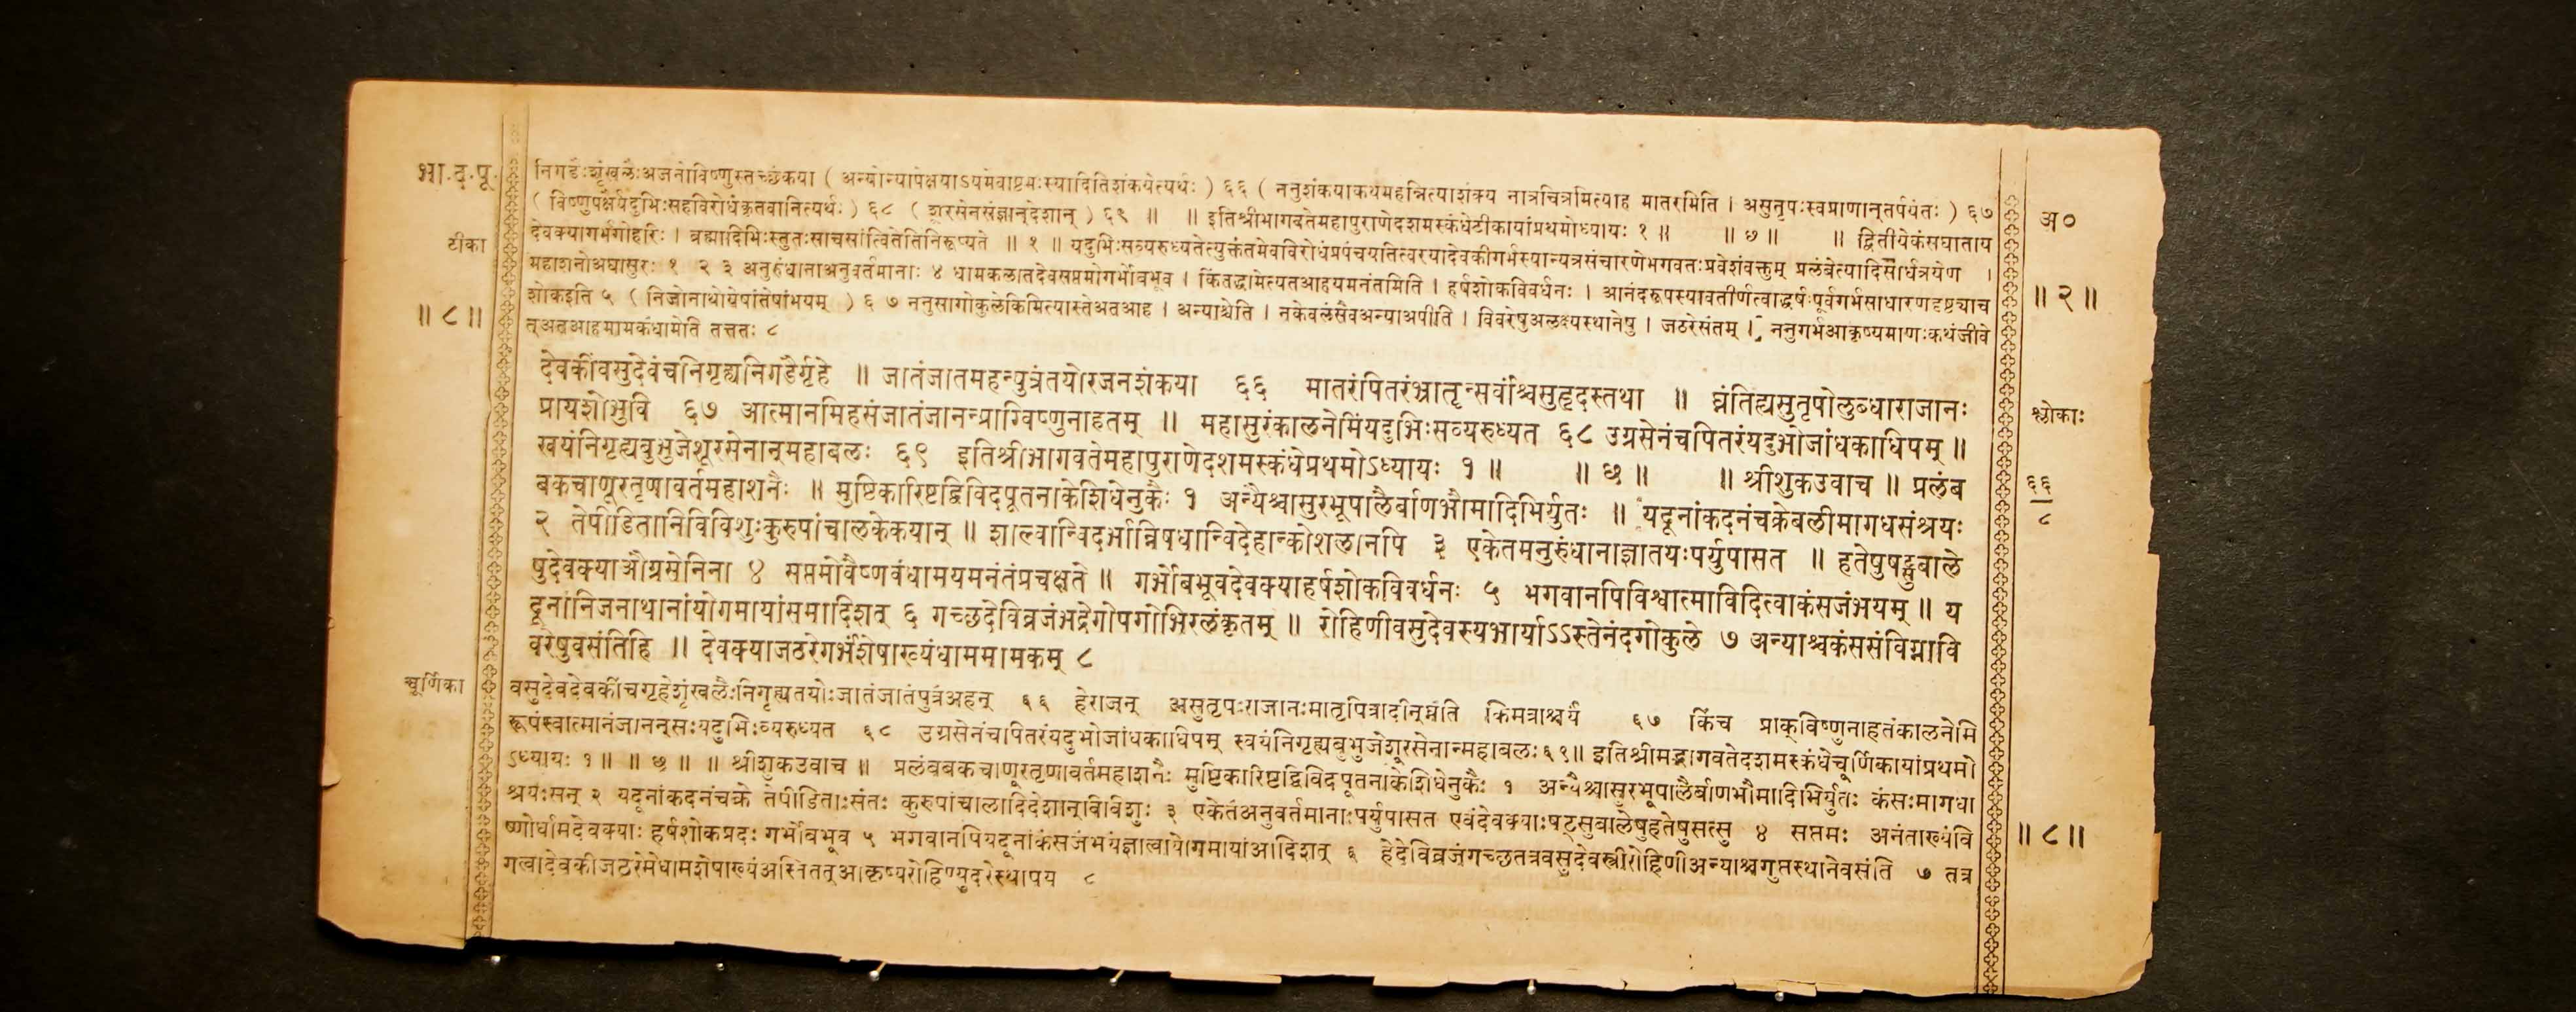 भा.द.पू.
टीका
॥ ८ ॥
निगडैःशृंखलैःअजनोविष्णुस्तच्छंकया ( अन्योन्यापेक्षयाऽयमेवाष्टमःस्यादितिशंकयेत्यर्थः ) ६६ ( ननुशंकयाकथमहन्नित्याशंक्य नात्रचित्रमित्याह मातरमिति । असुतृपःस्वप्राणान्तर्पयंतः ) ६७
( विष्णुपक्षैर्यदुभिःसहविरोधंकृतवानित्यर्थः ) ६८ ( शूरसेनसंज्ञान्देशान् ) ६९ ॥ ॥ इतिश्रीभागवतेमहापुराणेदशमस्कंधेटीकायांप्रथमोध्यायः १ ॥ ॥ ७ ॥ ॥ द्वितीयेकंसघाताय
देवक्यागर्भगोहरिः । ब्रह्मादिभिःस्तुतःसाचसांत्वितेतिनिरूप्यते ॥ १ ॥ यदुभिःसव्यरुध्यतेत्युक्तंतमेवविरोधंप्रपंचयतित्वरयादेवकीगर्भस्यान्यत्रसंचारणेभगवतःप्रवेशंवक्तुम् प्रलंबेत्यादिसार्धत्रयेण ।
महाशनोअघासुरः १ २ ३ अनुरुंधानाअनुवर्तमानाः ४ धामकलातदेवसप्तमोगर्भोबभूव । किंतद्धामेत्यतआहयमनंतमिति । हर्षशोकविवर्धनः । आनंदरूपस्यावतीर्णत्वाद्धर्षःपूर्वगर्भसाधारणदृष्ट्याच
शोकइति ५ ( निजोनाथोयेषांतेषांभयम् ) ६ ७ ननुसागोकुलेकिमित्यास्तेअतआह । अन्याश्चेति । नकेवलंसैवअन्याअपीति । विवरेषुअलक्ष्यस्थानेषु । जठरेसंतम् । ननुगर्भआकृष्यमाणःकथंजीवे
त्अतआहमामकंधामेति तत्ततः ८
देवकींवसुदेवंचनिगृह्यनिगडैर्गृहे ॥ जातंजातमहन्पुत्रंतयोरजनशंकया ६६ मातरंपितरंभ्रातॄन्सर्वांश्चसुहृदस्तथा ॥ घ्नंतिह्यसुतृपोलुब्धाराजानः
प्रायशोभुवि ६७ आत्मानमिहसंजातंजानन्प्राग्विष्णुनाहतम् ॥ महासुरंकालनेमिंयदुभिःसव्यरुध्यत ६८ उग्रसेनंचपितरंयदुभोजांधकाधिपम् ॥
स्वयंनिगृह्यबुभुजेशूरसेनान्महाबलः ६९ इतिश्रीभागवतेमहापुराणेदशमस्कंधेप्रथमोऽध्यायः १ ॥ ॥ छ ॥ ॥ श्रीशुकउवाच ॥ प्रलंब
बकचाणूरतृणावर्तमहाशनैः ॥ मुष्टिकारिष्टद्विविदपूतनाकेशिधेनुकैः १ अन्यैश्चासुरभूपालैर्बाणभौमादिभिर्युतः ॥ यदूनांकदनंचक्रेबलीमागधसंश्रयः
२ तेपीडितानिविविशुःकुरुपांचालकेकयान् ॥ शाल्वान्विदर्भान्निषधान्विदेहान्कोशलानपि ३ एकेतमनुरुंधानाज्ञातयःपर्युपासत ॥ हतेषुषट्सुबाले
षुदेवक्याऔग्रसेनिना ४ सप्तमोवैष्णवंधामयमनंतंप्रचक्षते ॥ गर्भोबभूवदेवक्याहर्षशोकविवर्धनः ५ भगवानपिविश्वात्माविदित्वाकंसजंभयम् ॥ य
दूनांनिजनाथानांयोगमायांसमादिशत् ६ गच्छदेविव्रजंभद्रेगोपगोभिरलंकृतम् ॥ रोहिणीवसुदेवस्यभार्याऽऽस्तेनंदगोकुले ७ अन्याश्चकंससंविग्नावि
वरेषुवसंतिहि ॥ देवक्याजठरेगर्भंशेषाख्यंधाममामकम् ८
चूर्णिका
वसुदेवदेवकींचगृहेशृंखलैःनिगृह्यतयोःजातंजातंपुत्रंअहन् ६६ हेराजन् असुतृपःराजानःमातृपित्रादीन्घ्नंति किमत्राश्चर्यं ६७ किंच प्राक्विष्णुनाहतंकालनेमि
रूपंस्वात्मानंजानन्सःयदुभिःव्यरुध्यत ६८ उग्रसेनंचपितरंयदुभोजांधकाधिपम् स्वयंनिगृह्यबुभुजेशूरसेनान्महाबलः६९॥ इतिश्रीमद्भागवतेदशमस्कंधेचूर्णिकायांप्रथमो
ऽध्यायः १ ॥ ॥ छ ॥ ॥ श्रीशुकउवाच ॥ प्रलंबबकचाणूरतृणावर्तमहाशनैः मुष्टिकारिष्टद्विविदपूतनाकेशिधेनुकैः १ अन्यैश्चासुरभूपालैर्बाणभौमादिभिर्युतः कंसःमागधा
श्रयःसन् २ यदूनांकदनंचक्रे तेपीडिताःसंतः कुरुपांचालादिदेशान्विविशुः ३ एकेतंअनुवर्तमानाःपर्युपासत एवंदेवक्याःषट्सुबालेषुहतेषुसत्सु ४ सप्तमः अनंताख्यंवि
ष्णोर्धामदेवक्याः हर्षशोकप्रदः गर्भोबभूव ५ भगवानपियदूनांकंसजंभयंज्ञात्वायोगमायांआदिशत् ६ हेदेविव्रजंगच्छतत्रवसुदेवस्त्रीरोहिणीअन्याश्चगुप्तस्थानेवसंति ७ तत्र
गत्वादेवकीजठरेमेधामशेषाख्यंअस्तितत्आकृष्यरोहिण्युदरेस्थापय ८
अ०
॥ २ ॥
श्लोकाः
६६
८
॥ ८ ॥